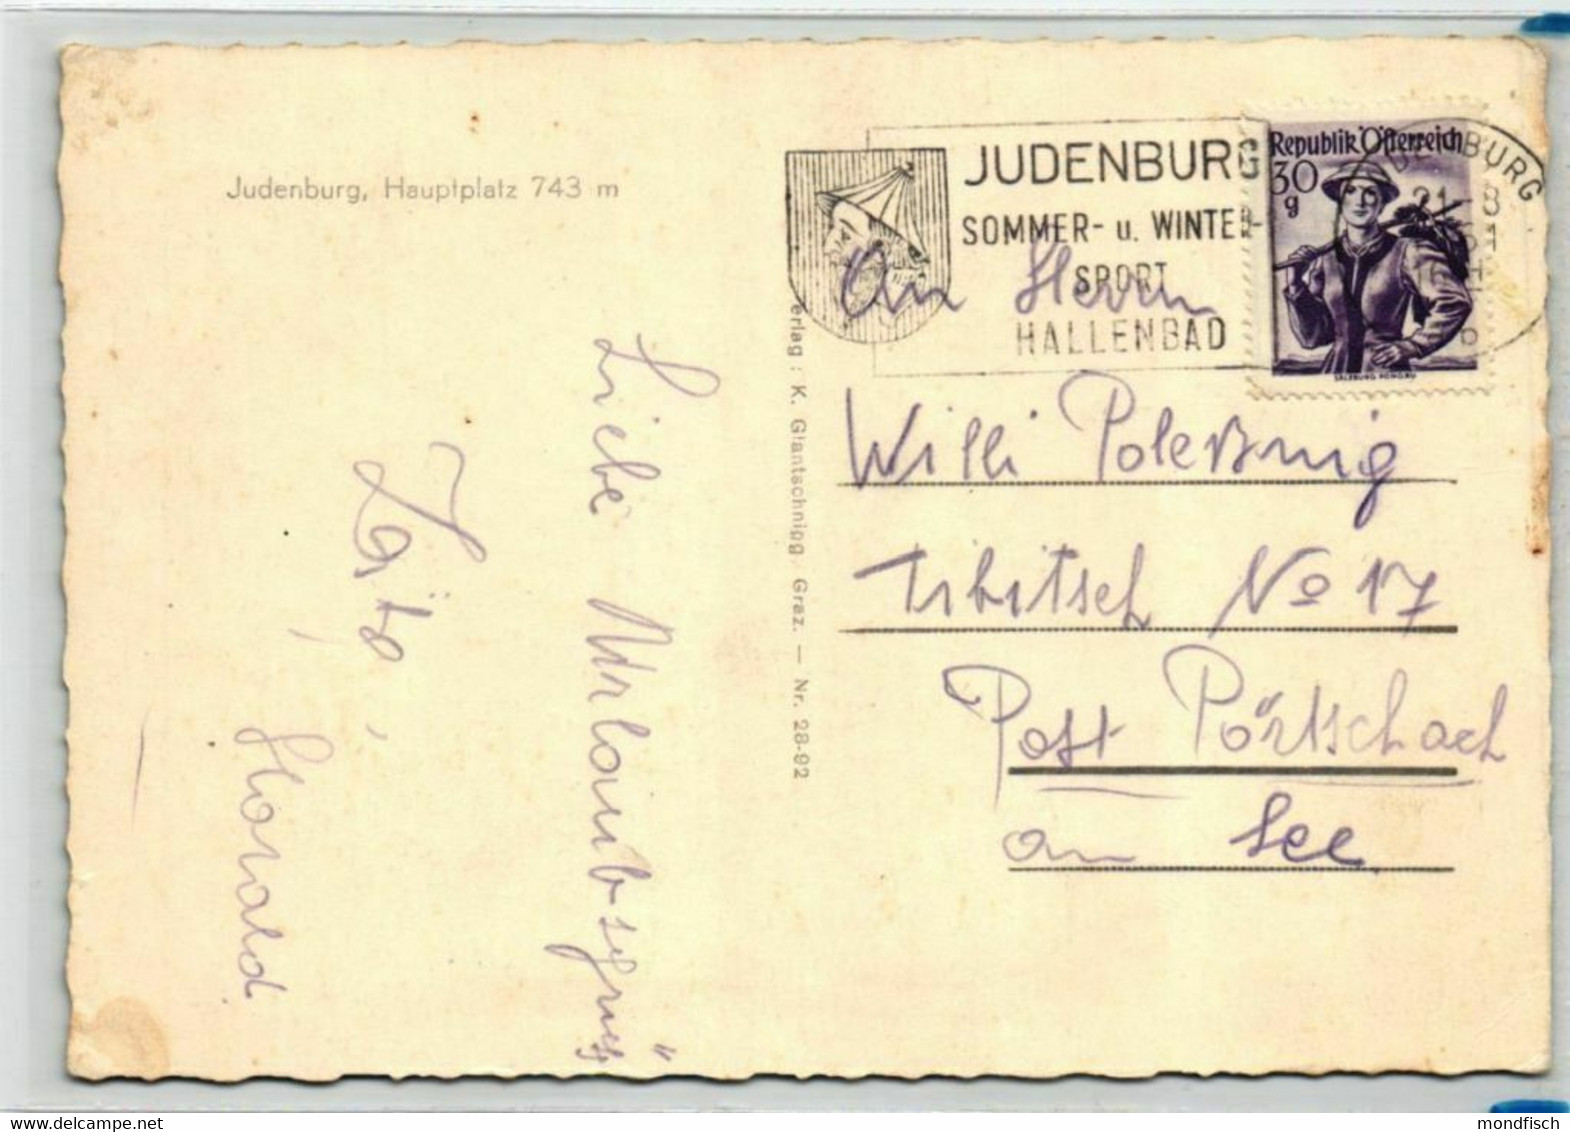 Judenburg, Hauptplatz 743 m
JUDENBURG
SOMMER- u. WINTER-
SPORT
HALLENBAD
Republik Österreich
30
g
SALZBURG, PONGAU
JUDENBURG
21.-8
61
An Herrn
Willi Poleßnig
Tibitsch No 17
Post Pörtschach
am See
Liebe Urlaubsgrüße
Harald
Verlag: K. Glantschnigg, Graz. — Nr. 28-92
mondfisch